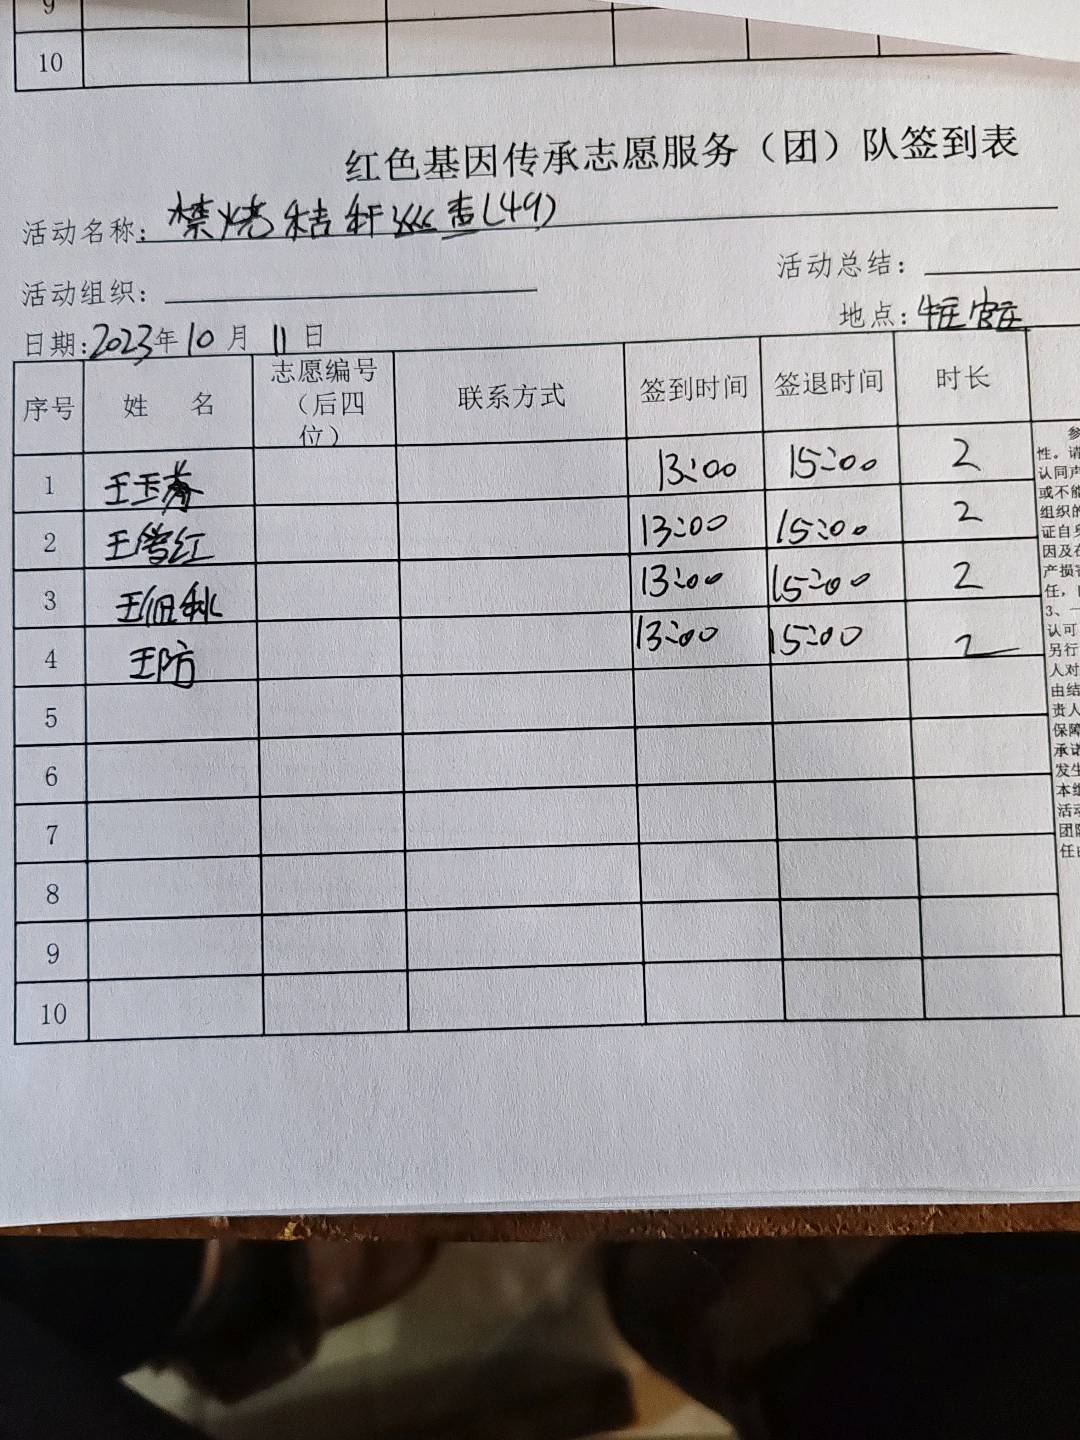 9
10
红色基因传承志愿服务（团）队签到表
活动名称：禁烧秸秆巡查(49)
活动组织：
活动总结：
日期：2023年10月11日
地点：
序号 姓 名 志愿编号（后四位） 联系方式 签到时间 签退时间 时长
1 王玉 13:00 15:00 2
2 王 红 13:00 15:00 2
3 王 秋 13:00 15:00 2
4 王防 13:00 15:00 2
5
6
7
8
9
10
性。请
认同声
或不能
组织的
证自身
因及在
产损害
任，
3、一
认可
另行
人对
由结
责人
保障
承诺
发生
本组
活动
团队
任由